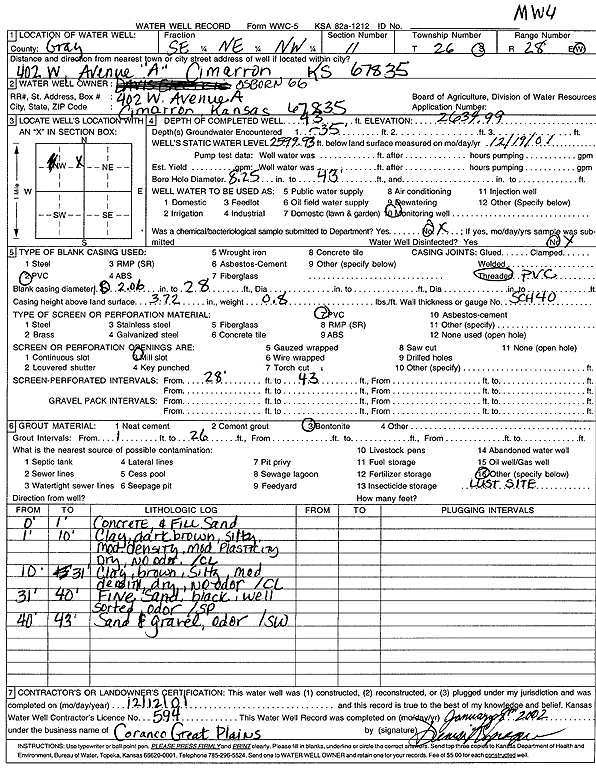 MW4
WATER WELL RECORD Form WWC-5 KSA 82a-1212 ID No.
1 LOCATION OF WATER WELL: Fraction Section Number Township Number Range Number
County: Gray SE ¼ NE ¼ NW ¼ 11 T 26 S R 28 E/W
Distance and direction from nearest town or city street address of well if located within city?
402 W. Avenue "A" Cimarron KS 67835
2 WATER WELL OWNER: OSBORN 66
RR#, St. Address, Box # : 402 W. Avenue A Board of Agriculture, Division of Water Resources
City, State, ZIP Code : Cimarron Kansas 67835 Application Number:
3 LOCATE WELL'S LOCATION WITH AN "X" IN SECTION BOX: 4 DEPTH OF COMPLETED WELL 43 ft. ELEVATION: 2639.99
Depth(s) Groundwater Encountered 1. ~35 ft. 2. ft. 3. ft.
WELL'S STATIC WATER LEVEL 2599.93 ft. below land surface measured on mo/day/yr 12/19/01
Pump test data: Well water was ft. after hours pumping gpm
Est. Yield gpm: Well water was ft. after hours pumping gpm
Bore Hole Diameter 8.25 in. to 43' ft., and in. to ft.
WELL WATER TO BE USED AS: 5 Public water supply 8 Air conditioning 11 Injection well
1 Domestic 3 Feedlot 6 Oil field water supply 9 Dewatering 12 Other (Specify below)
2 Irrigation 4 Industrial 7 Domestic (lawn & garden) 10 Monitoring well
Was a chemical/bacteriological sample submitted to Department? Yes No X ; If yes, mo/day/yrs sample was submitted Water Well Disinfected? Yes No X
N
NW NE
W E
SW SE
S
1 Mile
5 TYPE OF BLANK CASING USED: 5 Wrought iron 8 Concrete tile CASING JOINTS: Glued Clamped
1 Steel 3 RMP (SR) 6 Asbestos-Cement 9 Other (specify below) Welded
2 PVC 4 ABS 7 Fiberglass Threaded PVC
Blank casing diameter 2.06 in. to 28 ft., Dia in. to ft., Dia in. to ft.
Casing height above land surface 3.72 in., weight 0.8 lbs./ft. Wall thickness or gauge No. SCH40
TYPE OF SCREEN OR PERFORATION MATERIAL: 7 PVC 10 Asbestos-cement
1 Steel 3 Stainless steel 5 Fiberglass 8 RMP (SR) 11 Other (specify)
2 Brass 4 Galvanized steel 6 Concrete tile 9 ABS 12 None used (open hole)
SCREEN OR PERFORATION OPENINGS ARE: 5 Gauzed wrapped 8 Saw cut 11 None (open hole)
1 Continuous slot 3 Mill slot 6 Wire wrapped 9 Drilled holes
2 Louvered shutter 4 Key punched 7 Torch cut 10 Other (specify) ft.
SCREEN-PERFORATED INTERVALS: From 28' ft. to 43 ft., From ft. to ft.
From ft. to ft., From ft. to ft.
GRAVEL PACK INTERVALS: From ft. to ft., From ft. to ft.
From ft. to ft., From ft. to ft.
6 GROUT MATERIAL: 1 Neat cement 2 Cement grout 3 Bentonite 4 Other
Grout Intervals: From 1 ft. to 26 ft., From ft. to ft., From ft. to ft.
What is the nearest source of possible contamination: 10 Livestock pens 14 Abandoned water well
1 Septic tank 4 Lateral lines 7 Pit privy 11 Fuel storage 15 Oil well/Gas well
2 Sewer lines 5 Cess pool 8 Sewage lagoon 12 Fertilizer storage 16 Other (specify below)
3 Watertight sewer lines 6 Seepage pit 9 Feedyard 13 Insecticide storage LUST SITE
Direction from well? How many feet?
FROM TO LITHOLOGIC LOG FROM TO PLUGGING INTERVALS
0' 1' Concrete, & Fill Sand
1' 10' Clay, dark brown, silty,
mod density, mod Plasticity
Dry, no odor /CL
10' 31' Clay, brown, Silty, mod
density, dry, no odor /CL
31' 40' Fine Sand, black, well
sorted, odor /SP
40' 43' Sand & gravel, odor /SW
7 CONTRACTOR'S OR LANDOWNER'S CERTIFICATION: This water well was (1) constructed, (2) reconstructed, or (3) plugged under my jurisdiction and was
completed on (mo/day/year) 12/12/01 and this record is true to the best of my knowledge and belief. Kansas
Water Well Contractor's Licence No. 594 This Water Well Record was completed on (mo/day/yr) January 8th 2002
under the business name of Coranco Great Plains by (signature)
INSTRUCTIONS: Use typewriter or ball point pen. PLEASE PRESS FIRMLY and PRINT clearly. Please fill in blanks, underline or circle the correct answers. Send top three copies to Kansas Department of Health and
Environment, Bureau of Water, Topeka, Kansas 66620-0001. Telephone 785-296-5524. Send one to WATER WELL OWNER and retain one for your records. Fee of $5.00 for each constructed well.